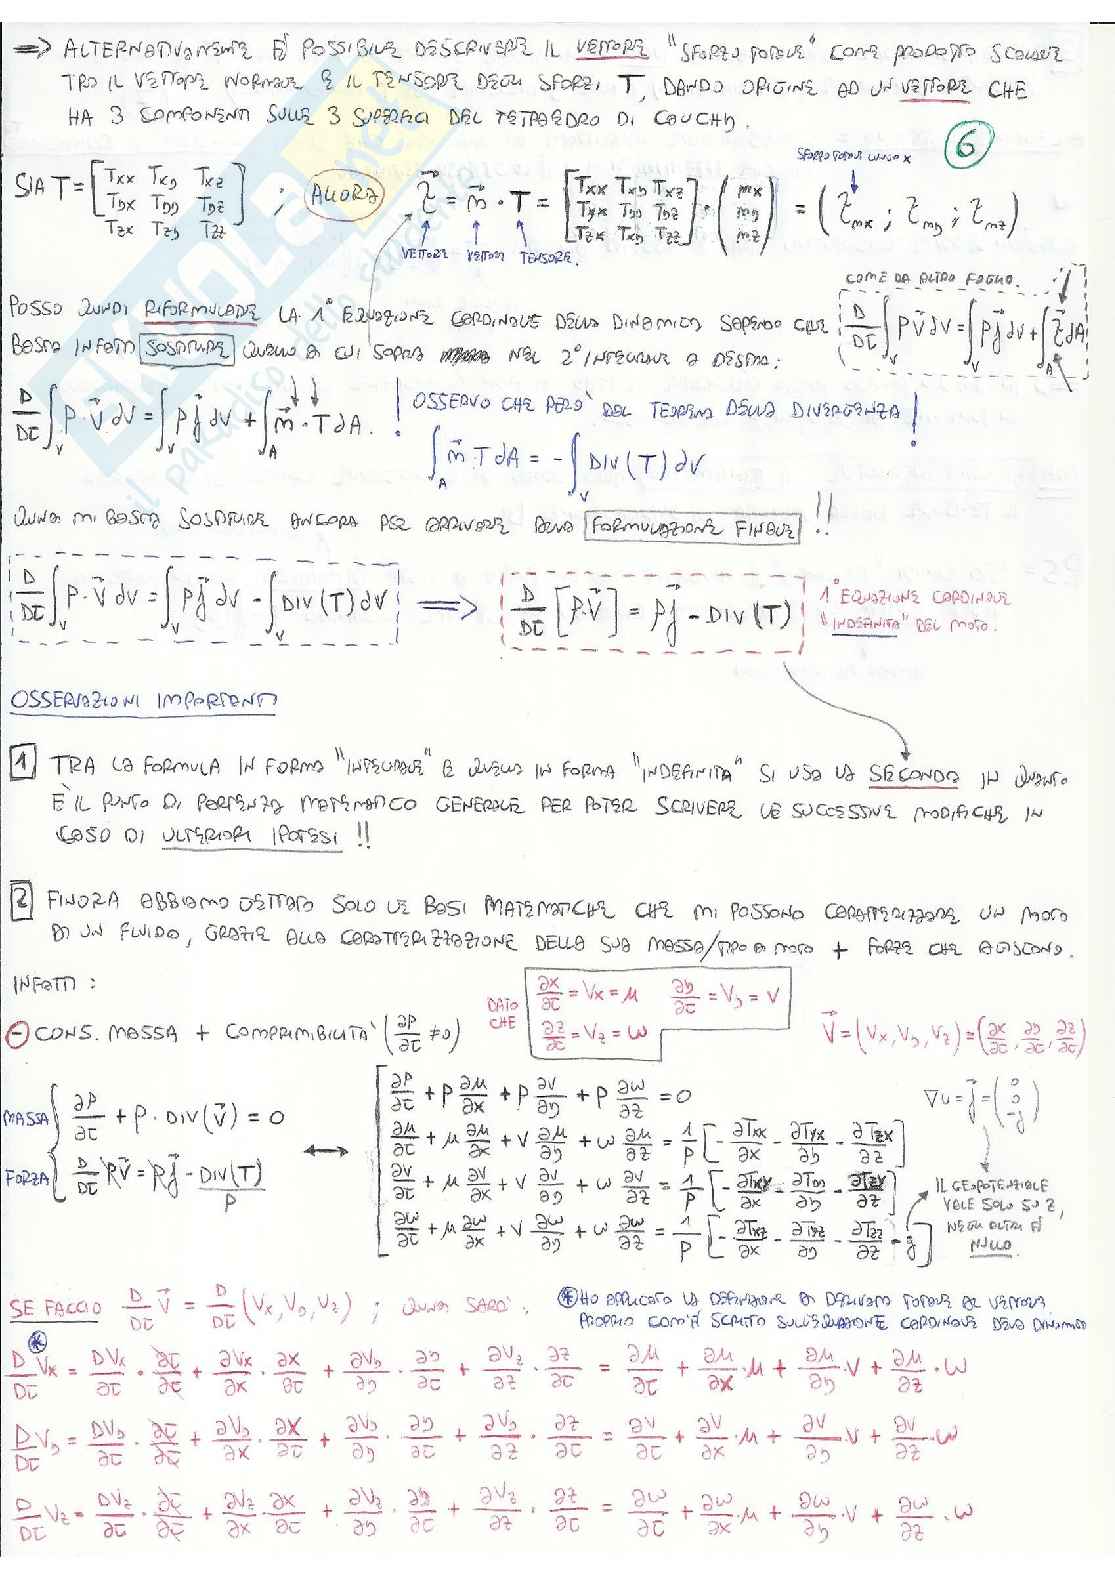 => ALTERNATIVAMENTE È POSSIBILE DESCRIVERE IL VETTORE "SFORZO TOTALE" COME PRODOTTO SCALARE
TRA IL VETTORE NORMALE E IL TENSORE DEGLI SFORZI T, DANDO ORIGINE AD UN VETTORE CHE
HA 3 COMPONENTI SULLE 3 SUPERFICI DEL TETRAEDRO DI CAUCHY.
6
SFORZO TOTALE LUNGO X
SIA T = [Txx Txy Txz; Tyx Tyy Tyz; Tzx Tzy Tzz] ; ALLORA τ⃗ = n⃗ · T = [Txx Txy Txz; Tyx Tyy Tyz; Tzx Txy Tzz] · (nx; ny; nz) = (τnx ; τny ; τnz)
VETTORE VETTORE TENSORE.
COME DA ALTRO FOGLIO.
POSSO QUINDI RIFORMULARE LA 1° EQUAZIONE CARDINALE DELLA DINAMICA SAPENDO CHE
D/Dτ ∫V ρ v⃗ dV = ∫V ρ g⃗ dV + ∫A τ⃗ dA
BASTA INFATTI SOSTITUIRE QUELLO DI CUI SOPRA NEL 2° INTEGRALE A DESTRA:
D/Dτ ∫V ρ · v⃗ dV = ∫V ρ g⃗ dV + ∫A n⃗ · T dA.
! OSSERVO CHE PERÒ DAL TEOREMA DELLA DIVERGENZA !
∫A n⃗ · T dA = - ∫V DIV(T) dV
QUINDI MI BASTA SOSTITUIRE ANCORA PER ARRIVARE ALLA FORMULAZIONE FINALE !!
D/Dτ ∫V ρ · v⃗ dV = ∫V ρ g⃗ dV - ∫V DIV(T) dV => D/Dτ [ρ · v⃗] = ρ g⃗ - DIV(T)
1° EQUAZIONE CARDINALE
"INDEFINITA" DEL MOTO.
OSSERVAZIONI IMPORTANTI
1 TRA LA FORMULA IN FORMA "INTEGRALE" E QUELLA IN FORMA "INDEFINITA" SI USA LA SECONDA IN QUANTO
È IL PUNTO DI PARTENZA MATEMATICO GENERALE PER POTER SCRIVERE LE SUCCESSIVE MODIFICHE IN
CASO DI ULTERIORI IPOTESI !!
2 FINORA ABBIAMO DETTATO SOLO LE BASI MATEMATICHE CHE MI POSSONO CARATTERIZZARE UN MOTO
DI UN FLUIDO, GRAZIE ALLA CARATTERIZZAZIONE DELLA SUA MASSA/TIPO DI MOTO + FORZE CHE AGISCONO.
INFATTI :
- CONS. MASSA + COMPRIMIBILITÀ (∂ρ/∂τ ≠ 0)
DATO CHE
∂x/∂τ = Vx = u ∂y/∂τ = Vy = v
∂z/∂τ = Vz = w
V⃗ = (Vx, Vy, Vz) = (∂x/∂τ, ∂y/∂τ, ∂z/∂τ)
MASSA { ∂ρ/∂τ + ρ · DIV(v⃗) = 0
FORZA { D/Dτ ρv⃗ = ρg⃗ - DIV(T)/ρ
<->
∂ρ/∂τ + ρ ∂u/∂x + ρ ∂v/∂y + ρ ∂w/∂z = 0
∂u/∂τ + u ∂u/∂x + v ∂u/∂y + w ∂u/∂z = 1/ρ [- ∂Txx/∂x - ∂Tyx/∂y - ∂Tzx/∂z]
∂v/∂τ + u ∂v/∂x + v ∂v/∂y + w ∂v/∂z = 1/ρ [- ∂Txy/∂x - ∂Tyy/∂y - ∂Tzy/∂z]
∂w/∂τ + u ∂w/∂x + v ∂w/∂y + w ∂w/∂z = 1/ρ [- ∂Txz/∂x - ∂Tyz/∂y - ∂Tzz/∂z - g]
∇u = g⃗ = (0; 0; -g)
IL GEOPOTENZIALE
VALE SOLO SU Z,
NEGLI ALTRI È
NULLO.
SE FACCIO D/Dτ v⃗ = D/Dτ (Vx, Vy, Vz) ; QUINDI SARÀ:
* HO APPLICATO LA DEFINIZIONE DI DERIVATA TOTALE AL VETTORE
PROPRIO COM'È SCRITTO SULL'EQUAZIONE CARDINALE DELLA DINAMICA
*
D/Dτ Vx = DVx/∂τ · ∂τ/∂τ + ∂Vx/∂x · ∂x/∂τ + ∂Vy/∂y · ∂y/∂τ + ∂Vz/∂z · ∂z/∂τ = ∂u/∂τ + ∂u/∂x · u + ∂u/∂y · v + ∂u/∂z · w
D/Dτ Vy = DVy/∂τ · ∂τ/∂τ + ∂Vy/∂x · ∂x/∂τ + ∂Vy/∂y · ∂y/∂τ + ∂Vy/∂z · ∂z/∂τ = ∂v/∂τ + ∂v/∂x · u + ∂v/∂y · v + ∂v/∂z · w
D/Dτ Vz = DVz/∂τ · ∂τ/∂τ + ∂Vz/∂x · ∂x/∂τ + ∂Vz/∂y · ∂y/∂τ + ∂Vz/∂z · ∂z/∂τ = ∂w/∂τ + ∂w/∂x · u + ∂w/∂y · v + ∂w/∂z · w